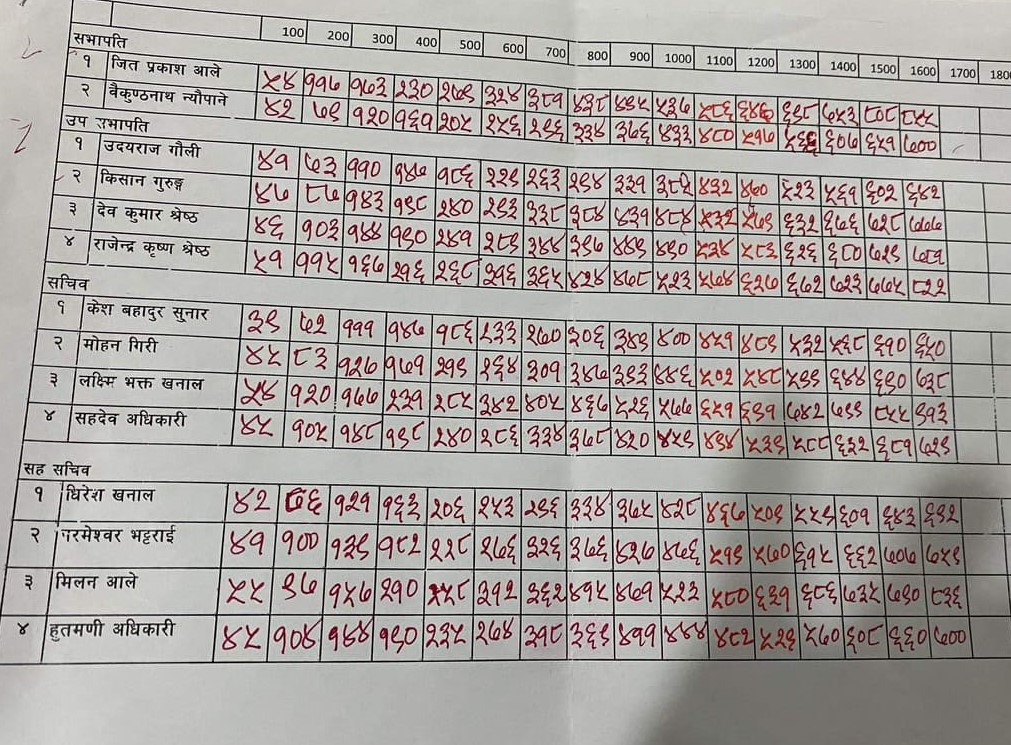 100 200 300 400 500 600 700 800 900 1000 1100 1200 1300 1400 1500 1600 1700 1800
सभापति
१ जित प्रकाश आले ५४ ११६ १७३ २३० २७९ ३२४ ३८१ ४३८ ४९५ ५३७
२ वैकुण्ठनाथ न्यौपाने ४२ ७९ १२० १६१ २०५ २५६ २९६ ३३४ ३७६ ४३३ ४८० ५१७ ६०७ ६५१ ७००
उप सभापति
१ उदयराज गौली ४१ ७३ ११० १४७ १८६ २२९ २६३ २९४ ३३१ ४३२ ४७० ५२३ ५६१ ६०२ ६४२
२ किसान गुरुङ्ग ४७ ८७ १४३ १९८ २४० २९३ ३३८ ३८४ ४३१ ४८४ ५३२ ५७९ ६३२ ६७६ ७२८ ७७७
३ देव कुमार श्रेष्ठ ४६ १०३ १४४ १९० २४१ २८९ ३४४ ३९७ ४४९ ४९० ५३४ ५८३ ६२६ ६८० ७२९
४ राजेन्द्र कृष्ण श्रेष्ठ ५१ ११५ १६७ २१६ २६८ ३१६ ३६५ ४२४ ४७८ ५२३ ५७४ ६२७ ६७२ ७२३ ७७५ ८२२
सचिव
१ केश बहादुर सुनार ३९ ७२ १११ १४७ १८६ २३३ २७० ३०६ ३४९ ४०० ४५१ ४८९ ५३२ ५३८ ६१० ६५०
२ मोहन गिरी ४५ ८३ १२७ १७१ २१९ २६४ ३०१ ३४७ ३९३ ४४६ ५०२ ५४८ ५९९ ६४४ ६९० ७३८
३ लक्ष्मि भक्त खनाल ५४ १२० १७७ २३१ २८५ ३४२ ४०५ ४६७ ५२६ ५७७ ६५१ ६९१ ७४२ ७९९ ८५५ ९१३
४ सहदेव अधिकारी ४५ १०५ १४८ १९८ २४० २८६ ३३४ ३७८ ४२० ४५९ ४९४ ५३९ ५८८ ६३२ ६८१ ७२९
सह सचिव
१ धिरेश खनाल ४२ ७६ १२१ १६३ २०६ २५३ २९६ ३३४ ३७५ ४२८ ४६७ ५०९ ५५५ ६०१ ६४३ ६९२
२ परमेश्वर भट्टराई ४१ १०० १३९ १८२ २२८ २७६ ३२६ ३७६ ४२७ ४७६ ५१६ ५७० ६१५ ६३२ ७०७ ७५९
३ मिलन आले ५५ ९७ १५७ २१० ३१२ ३६२ ४१५ ४७१ ५२३ ५८० ६३१ ६८६ ७३५ ७९० ८३६
४ हुतमणी अधिकारी ४५ १०४ १५४ १९० २३५ २७४ ३१८ ३६६ ४११ ४४४ ४८२ ५२६ ५७० ६०८ ६६० ७००